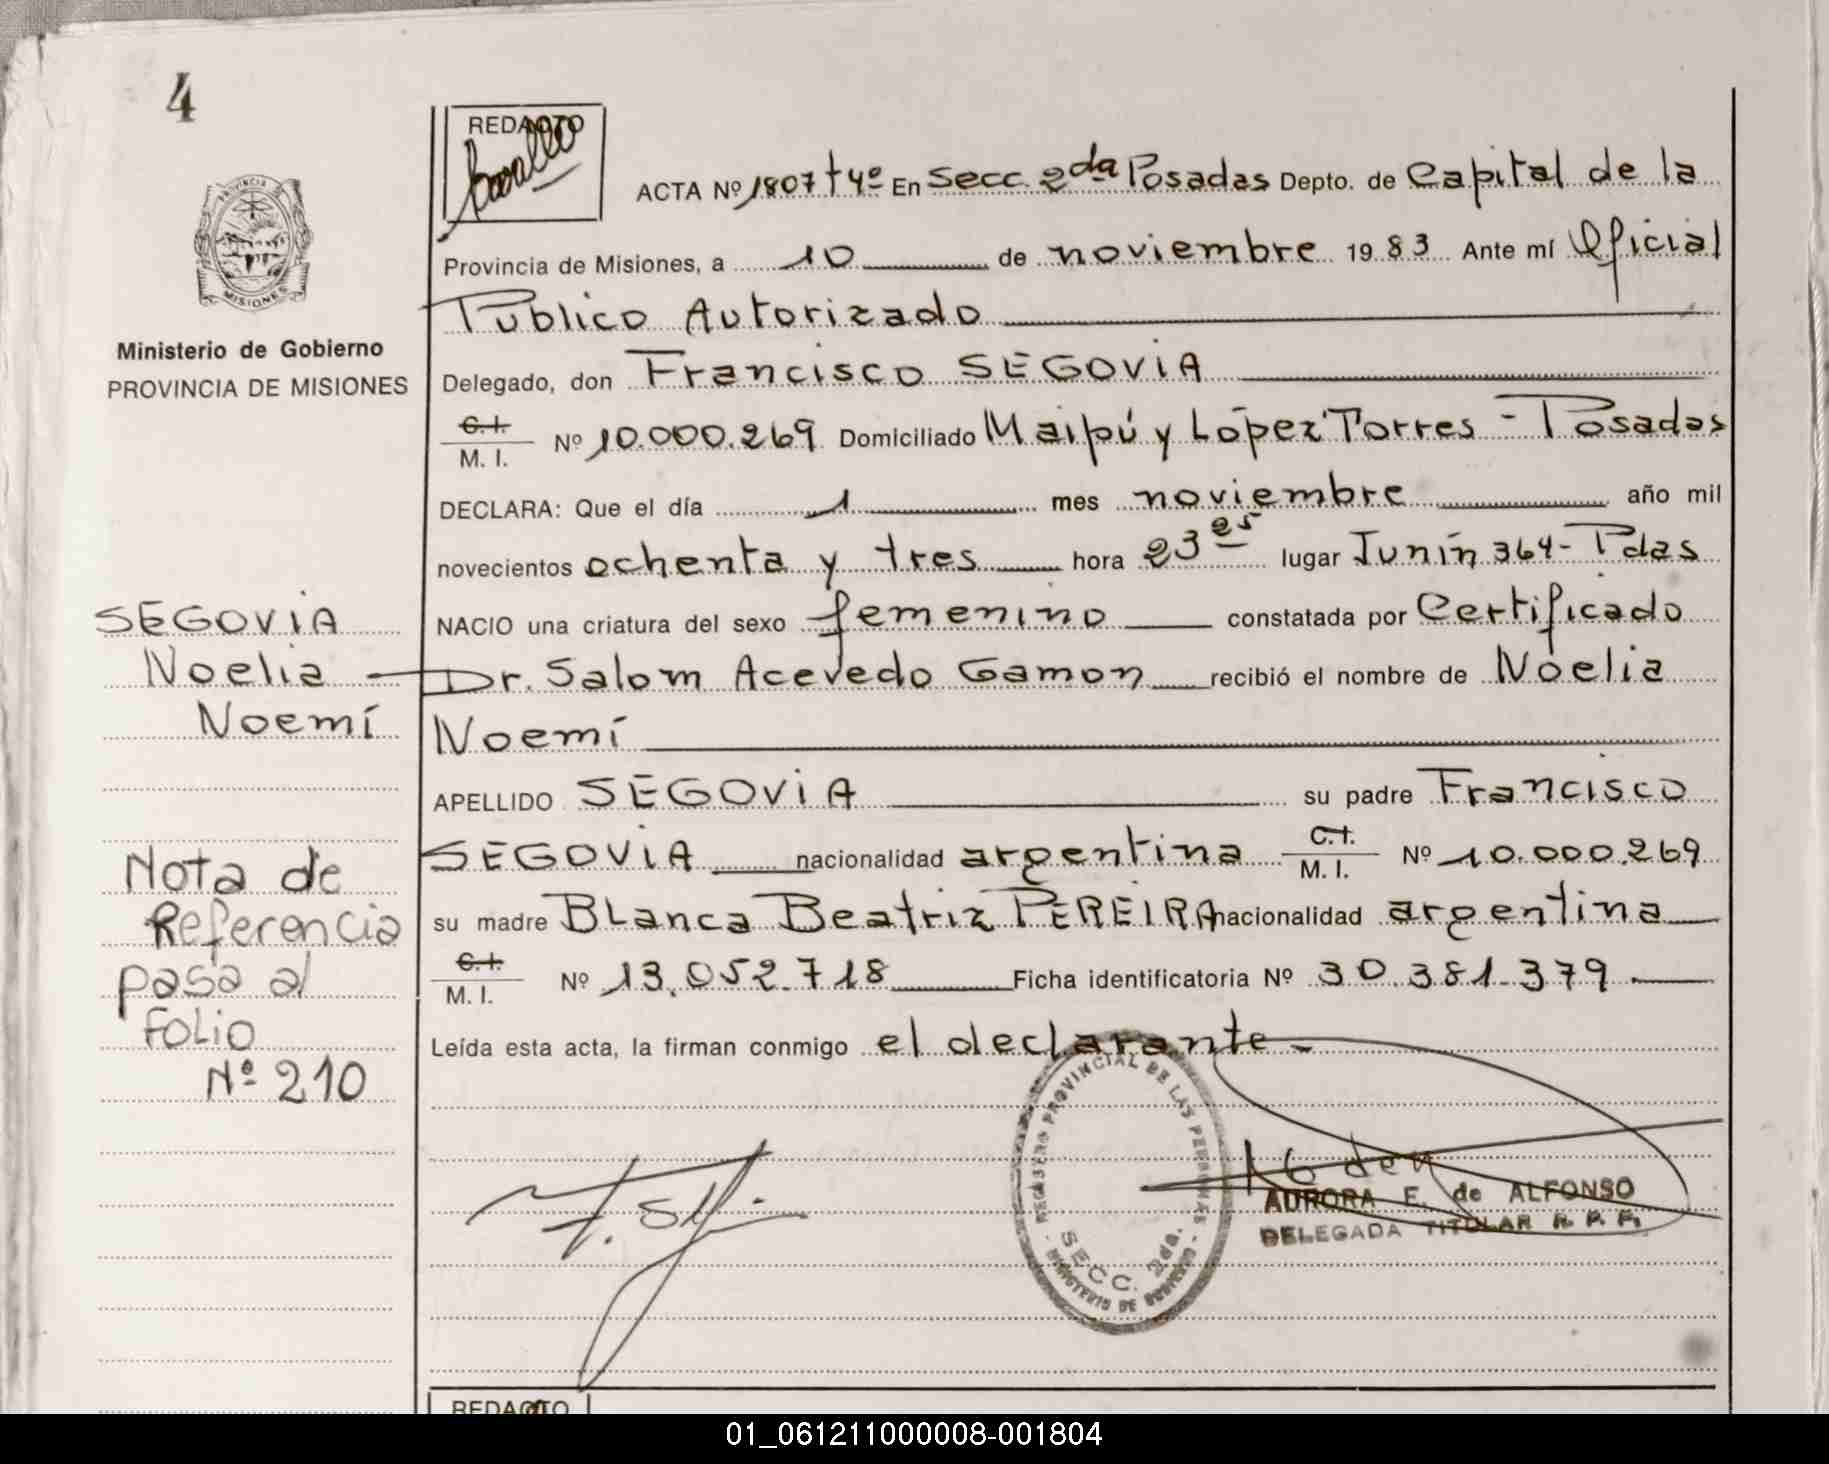 4
PROVINCIA
MISIONES
Ministerio de Gobierno
PROVINCIA DE MISIONES
REDACTO
ACTA Nº 1807 tº 4º En Secc. 2da Posadas Depto. de Capital de la
Provincia de Misiones, a 10 de noviembre 1983 Ante mí Oficial
Público Autorizado
Delegado, don Francisco SEGOVIA
C.I.
M. I. Nº 10.000.269 Domiciliado Maipú y López Torres - Posadas
DECLARA: Que el día 1 mes noviembre año mil
novecientos ochenta y tres hora 23 25 lugar Junín 364 - Pdas
NACIO una criatura del sexo femenino constatada por Certificado
Dr. Salom Acevedo Gamon recibió el nombre de Noelia
Noemí
APELLIDO SEGOVIA su padre Francisco
SEGOVIA nacionalidad argentina C.I. M. I. Nº 10.000.269
su madre Blanca Beatriz PEREIRA nacionalidad argentina
C.I.
M. I. Nº 13.052.718 Ficha identificatoria Nº 30.381.379.
Leída esta acta, la firman conmigo el declarante -
SEGOVIA
Noelia
Noemí
Nota de
Referencia
pasa al
FOLIO
Nº 210
REGISTRO PROVINCIAL DE LAS PERSONAS
SECC. 2da.
MINISTERIO DE GOBIERNO
AURORA E. de ALFONSO
DELEGADA TITULAR R. P. P.
REDACTO
01_061211000008-001804